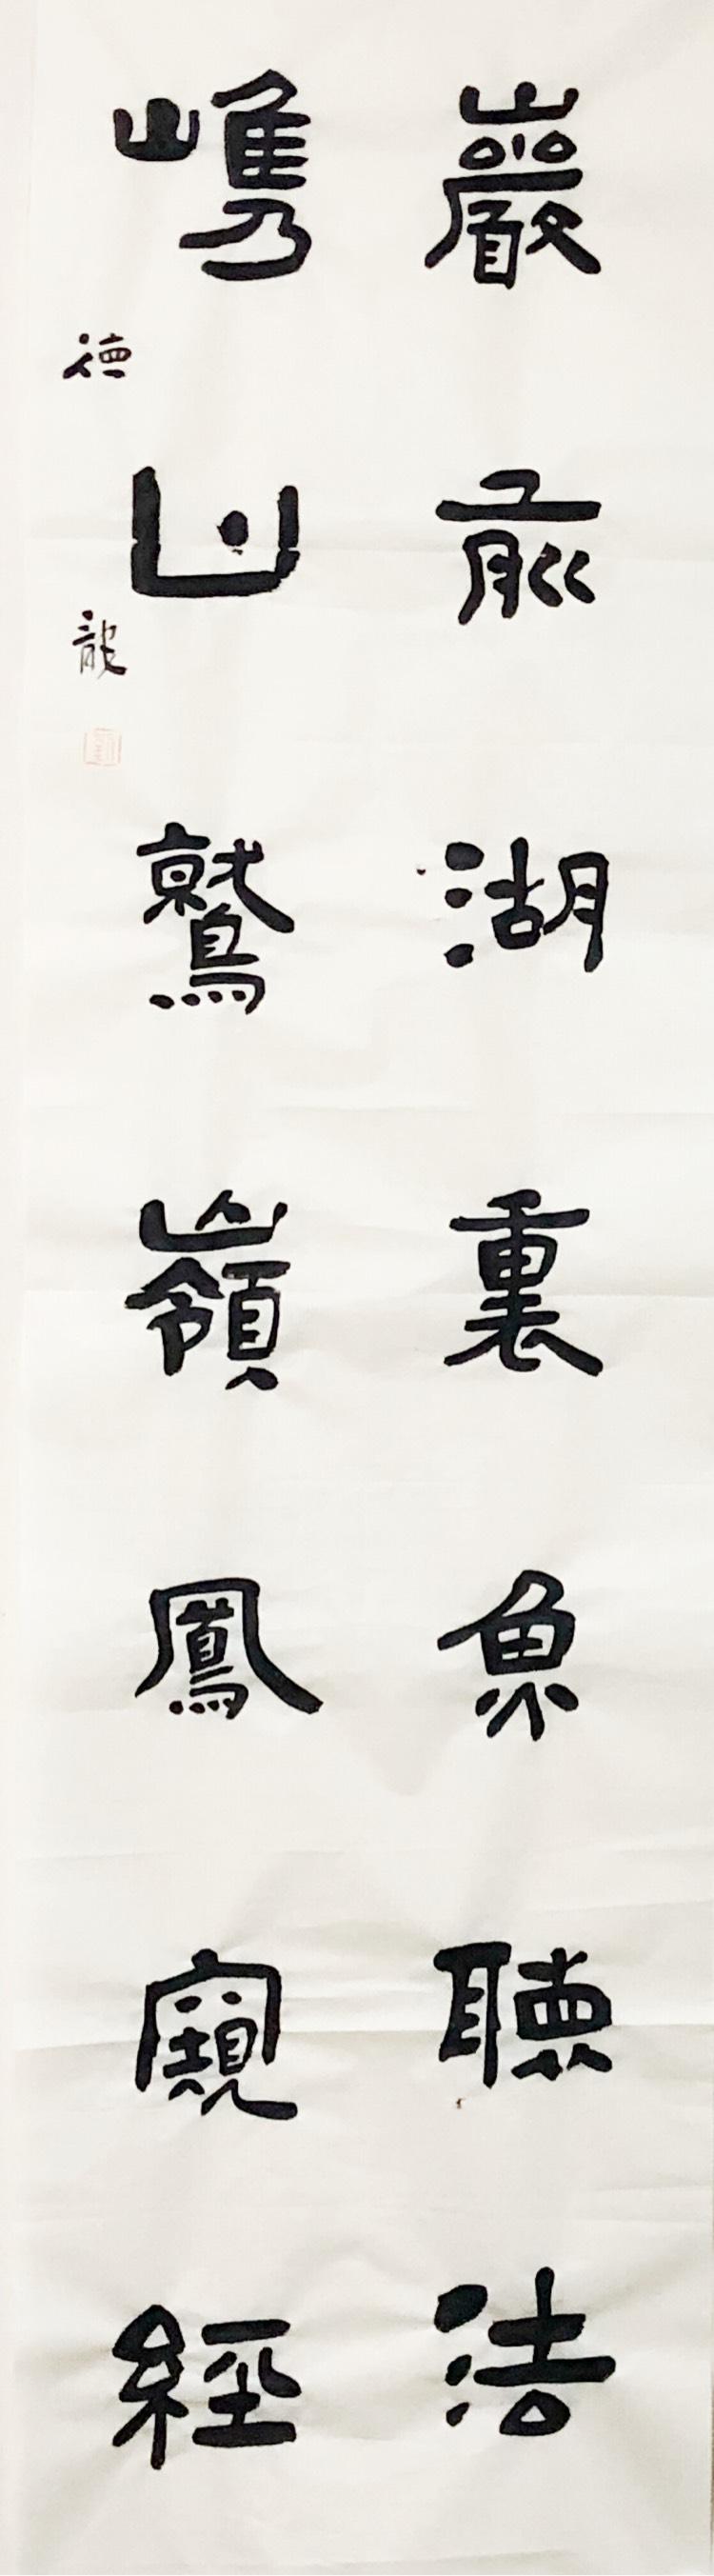 巖前湖裏魚聽法
嶲山鷲嶺鳳窺經
德龍